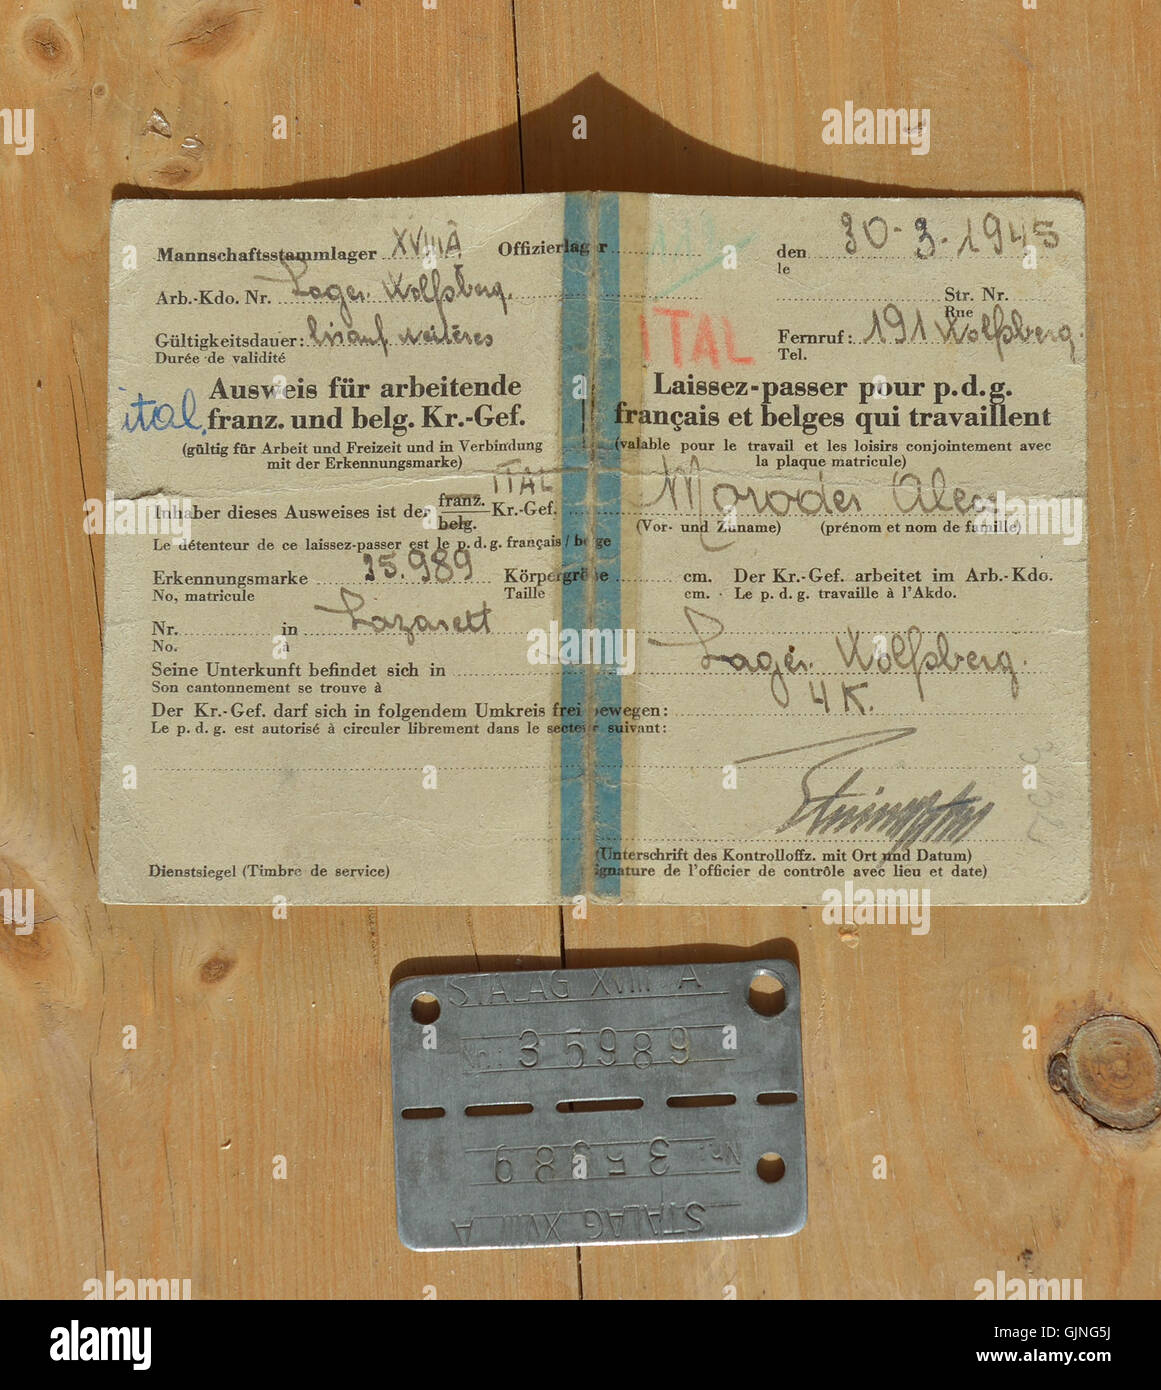 Mannschaftsstammlager XVIIIA Offizierlager den 30-3-1945
le
Arb.-Kdo. Nr. Lager Wolfsberg. Str. Nr.
Rue
Gültigkeitsdauer: bis auf weiteres Fernruf: 191 Wolfsberg.
Durée de validité Tel.
ITAL
Ausweis für arbeitende
ital. franz. und belg. Kr.-Gef.
(gültig für Arbeit und Freizeit und in Verbindung
mit der Erkennungsmarke)
Laissez-passer pour p.d.g.
français et belges qui travaillent
(valable pour le travail et les loisirs conjointement avec
la plaque matricule)
ITAL
Inhaber dieses Ausweises ist der franz. belg. Kr.-Gef. Moroder Alex
(Vor- und Zuname) (prénom et nom de famille)
Le détenteur de ce laissez-passer est le p.d.g. français / belge
Erkennungsmarke 35.989 Körpergrösse cm. Der Kr.-Gef. arbeitet im Arb.-Kdo.
No, matricule Taille cm. Le p. d. g. travaille à l'Akdo.
Nr. in Lazarett
No. à
Lager Wolfsberg.
Seine Unterkunft befindet sich in
Son cantonnement se trouve à
4K.
Der Kr.-Gef. darf sich in folgendem Umkreis frei bewegen:
Le p. d. g. est autorisé à circuler librement dans le secteur suivant:
(Unterschrift des Kontrolloffz. mit Ort und Datum)
Dienstsiegel (Timbre de service) ignature de l'officier de contrôle avec lieu et date)
STALAG XVIII A
Nr.: 35989
Nr.: 35989
STALAG XVIII A
alamy
alamy
alamy
alamy
alamy
Image ID: GJNG5J
www.alamy.com